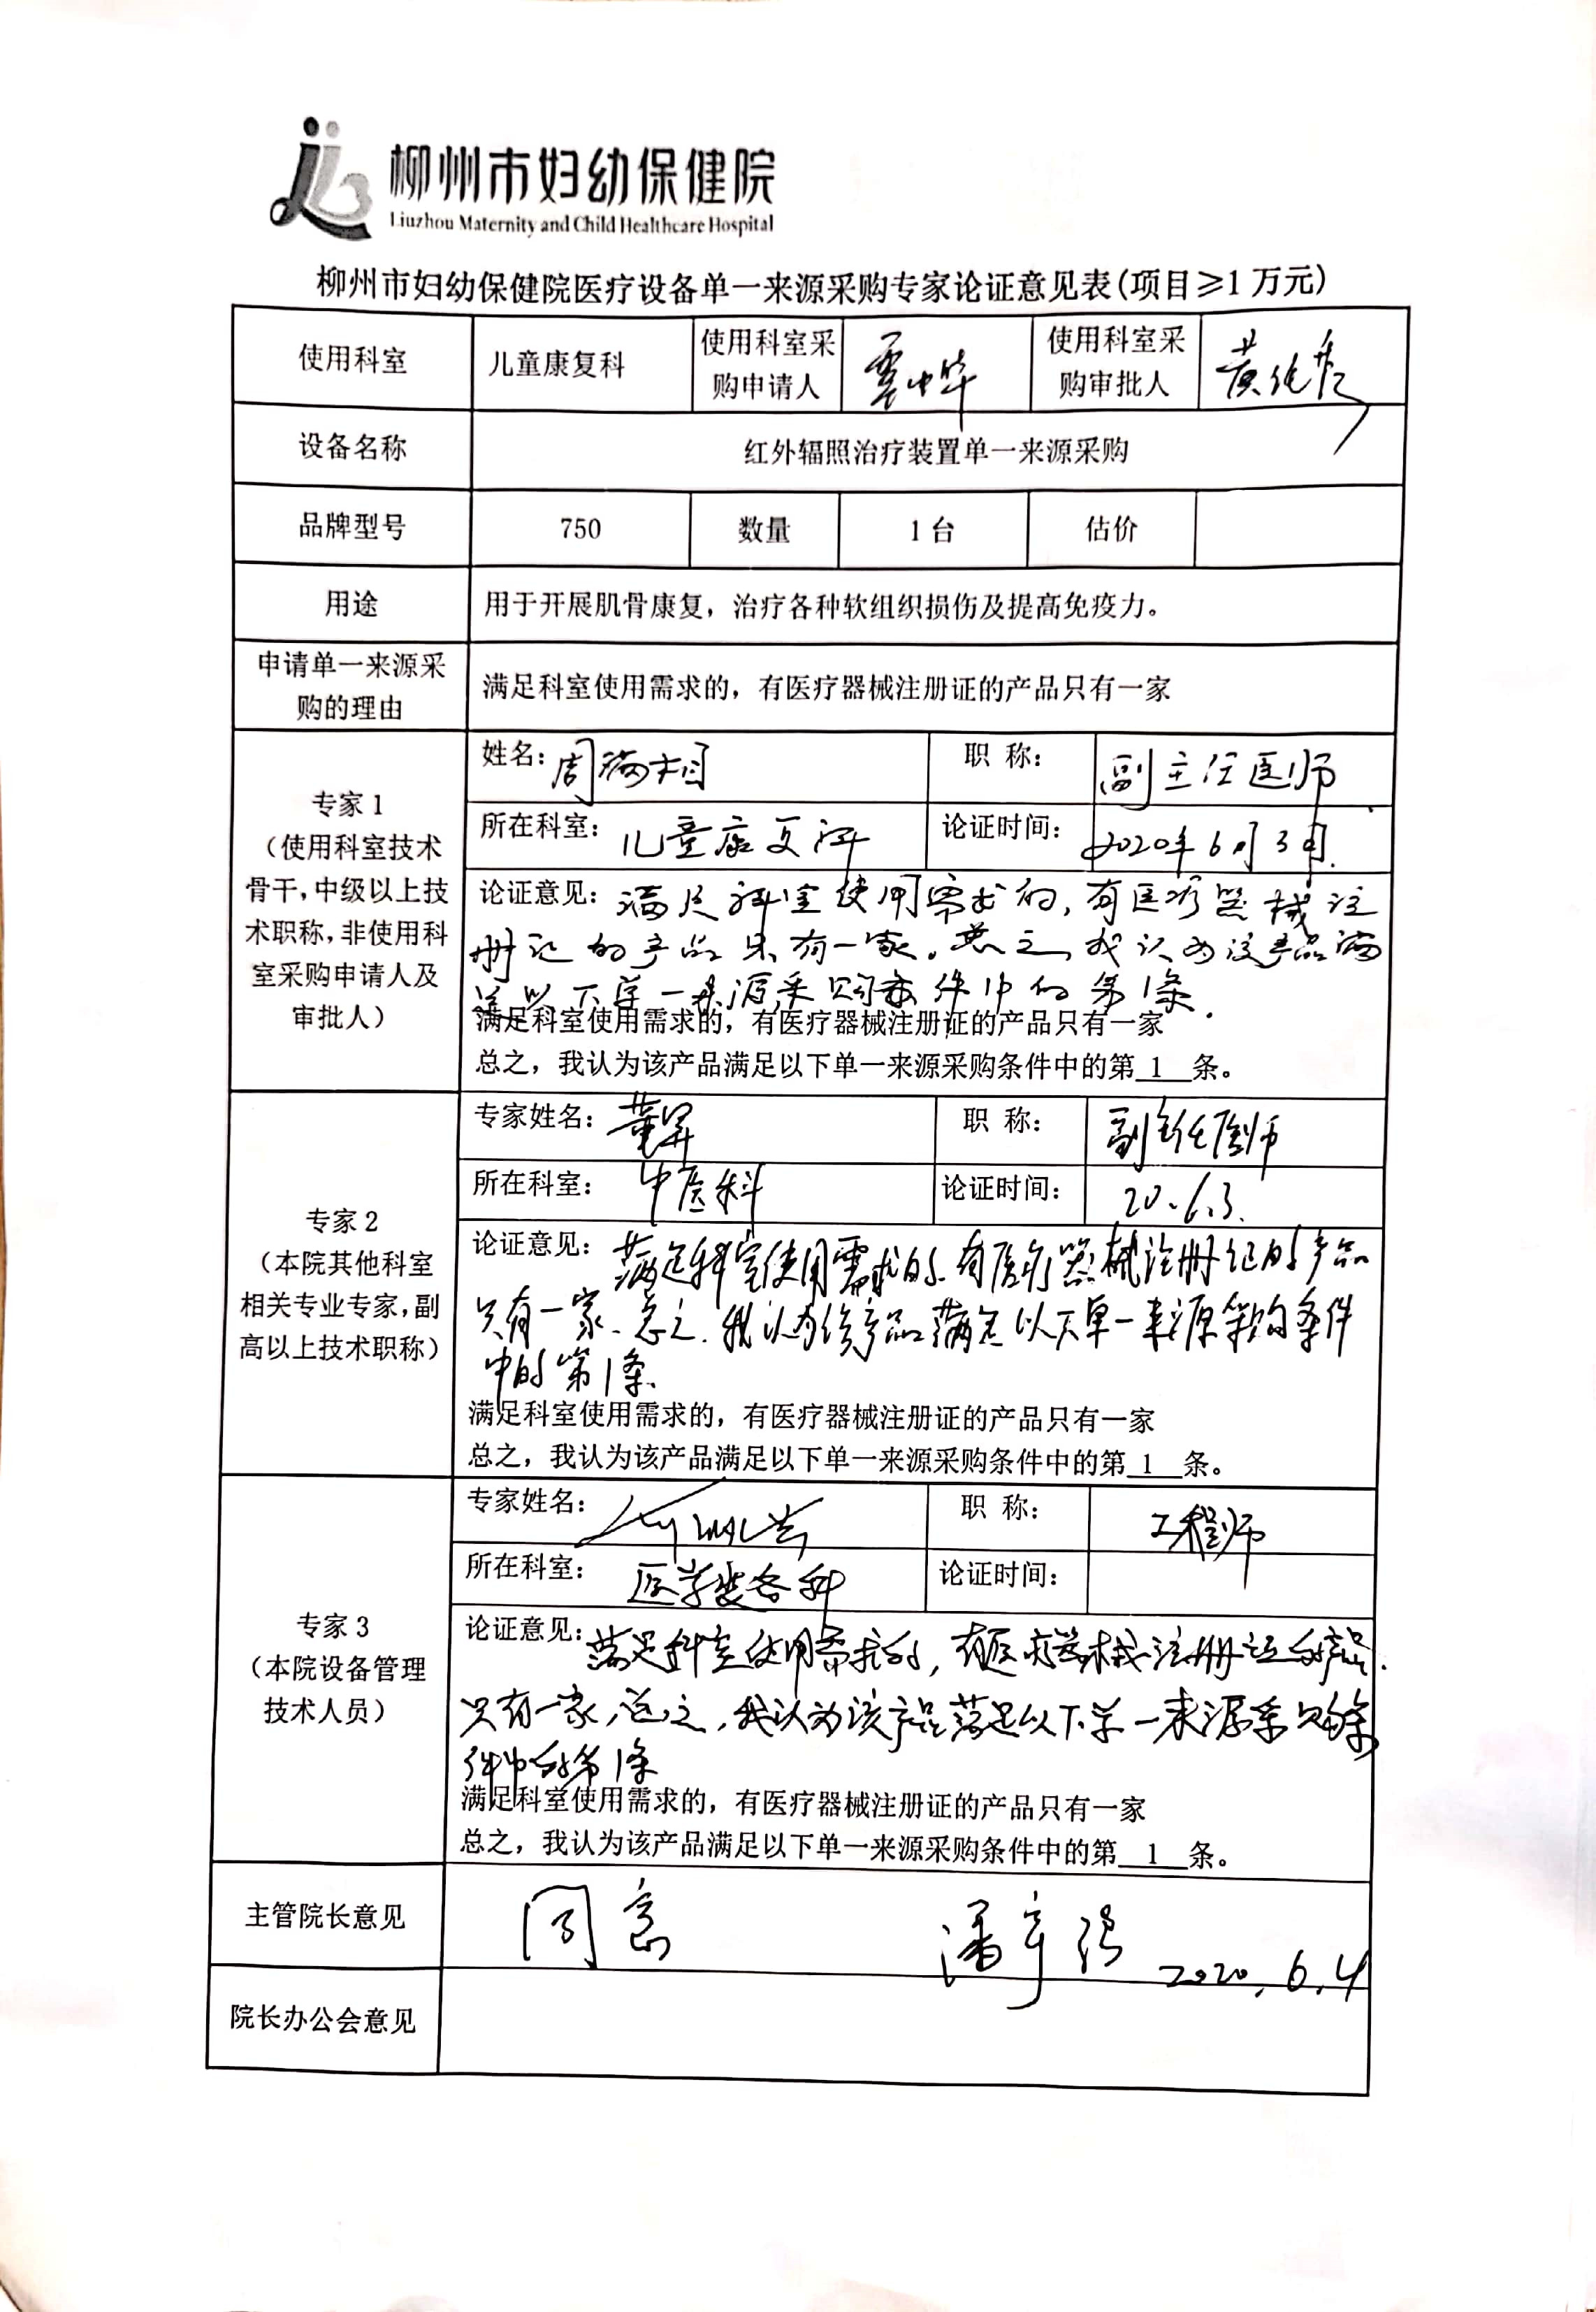 柳州市妇幼保健院
Liuzhou Maternity and Child Healthcare Hospital
柳州市妇幼保健院医疗设备单一来源采购专家论证意见表(项目≥1万元)
使用科室 儿童康复科 使用科室采购申请人 使用科室采购审批人
设备名称 红外辐照治疗装置单一来源采购
品牌型号 750 数量 1台 估价
用途 用于开展肌骨康复，治疗各种软组织损伤及提高免疫力。
申请单一来源采购的理由 满足科室使用需求的，有医疗器械注册证的产品只有一家
专家1
（使用科室技术
骨干，中级以上技
术职称，非使用科
室采购申请人及
审批人）
姓名： 职 称： 副主任医师
所在科室： 儿童康复科 论证时间： 2020年6月3日.
论证意见：满足科室使用需求的，有医疗器械注
册证的产品只有一家。总之，我认为该产品满
足以下单一来源采购条件中的第1条.
满足科室使用需求的，有医疗器械注册证的产品只有一家
总之，我认为该产品满足以下单一来源采购条件中的第 1 条。
专家2
（本院其他科室
相关专业专家，副
高以上技术职称）
专家姓名： 职 称： 副主任医师
所在科室： 中医科 论证时间： 20.6.3.
论证意见：满足科室使用需求的、有医疗器械注册证的产品
只有一家、总之、我认为该产品满足以下单一来源采购条件
中的第1条、
满足科室使用需求的，有医疗器械注册证的产品只有一家
总之，我认为该产品满足以下单一来源采购条件中的第 1 条。
专家3
（本院设备管理
技术人员）
专家姓名： 职 称： 工程师
所在科室： 医学装备科 论证时间：
论证意见：满足科室使用需求的，有医疗器械注册证的产品.
只有一家，总之，我认为该产品满足以下单一来源采购条
件中的第1条
满足科室使用需求的，有医疗器械注册证的产品只有一家
总之，我认为该产品满足以下单一来源采购条件中的第 1 条。
主管院长意见 同意 2020.6.4
院长办公会意见